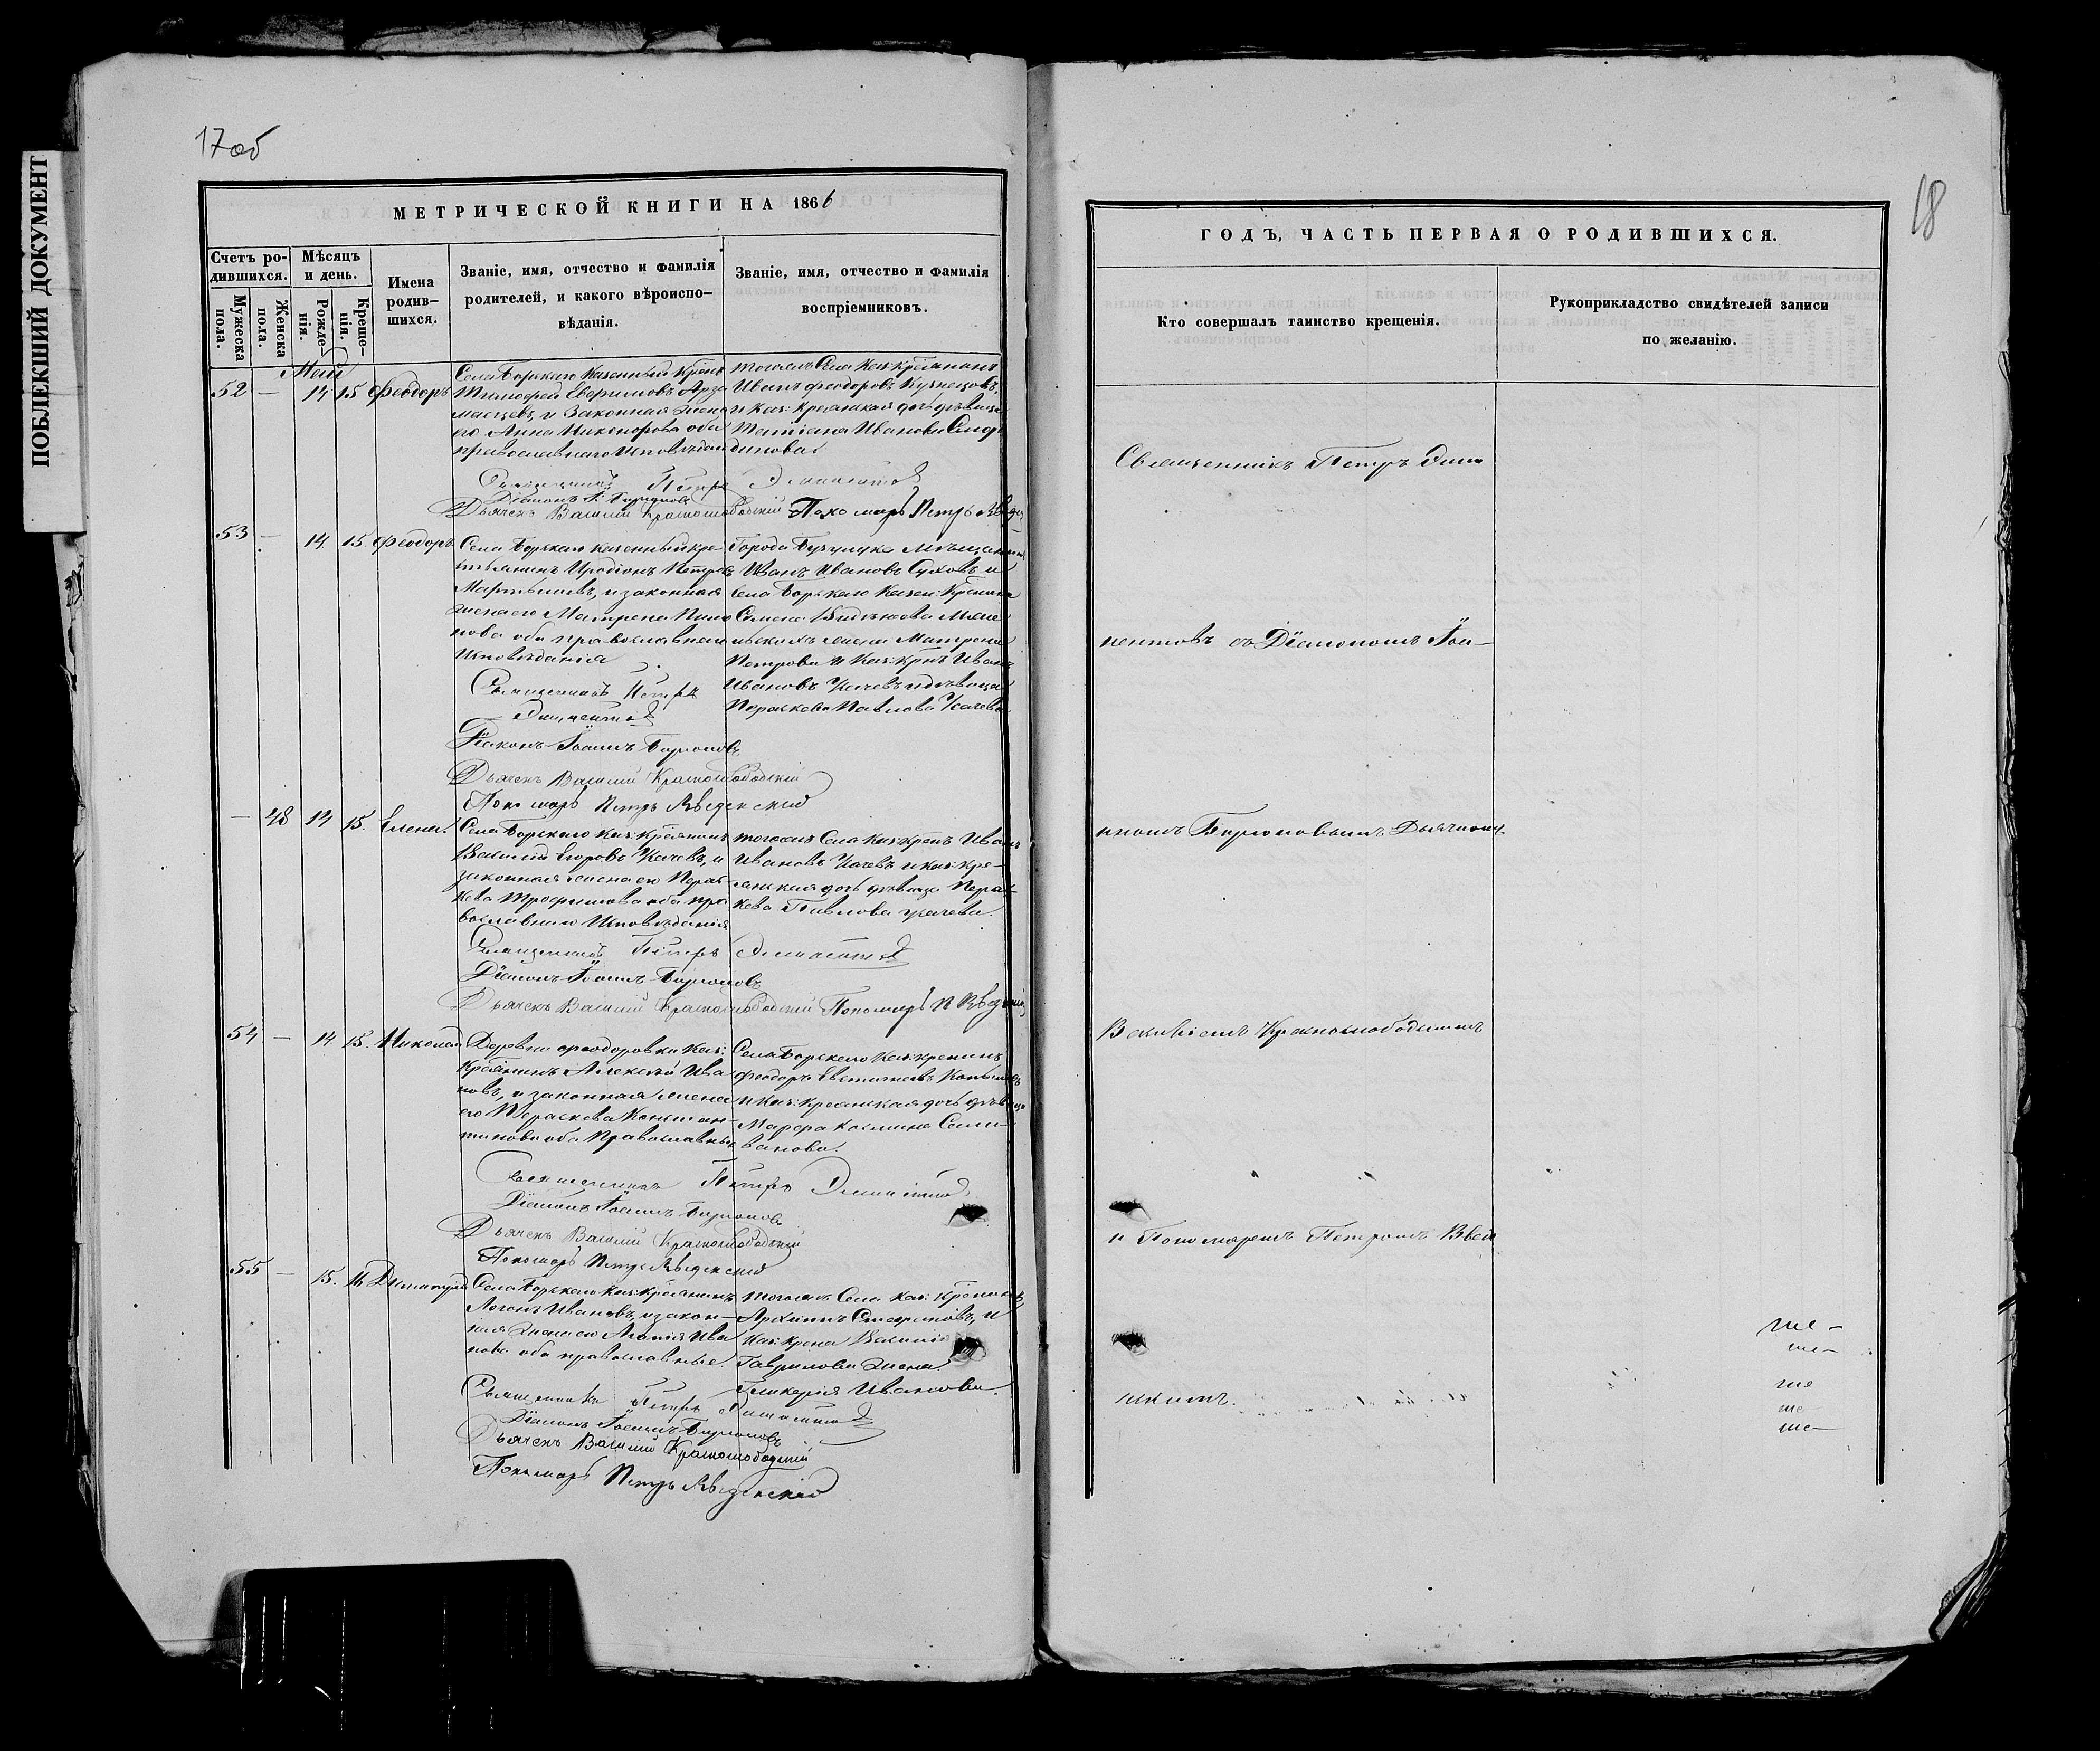 ПОБЛЕКШИЙ ДОКУМЕНТ
17об
МЕТРИЧЕСКОЙ КНИГИ НА 1866
Счетъ ро-
дившихся.
Мужеска
пола.
Женска
пола.
Мѣсяцъ
и день.
Рожде-
нія.
Креще-
нія.
Имена
родив-
шихся.
Званіе, имя, отчество и фамилія
родителей, и какого вѣроиспо-
вѣданія.
Званіе, имя, отчество и фамилія
воспріемниковъ.
Май
52 — 14 15 Феодоръ
Села Борскаго Казенный
Тимофей Евфимовъ Арза
масцевъ, и законная жена
его Анна Никифорова оба
православнаго Исповѣдан
тогожъ Села Каз: Крестьянинъ
Иванъ Феодоровъ Кузнецовъ,
и Каз: Крестьянская дочь дѣвица
Татіана Иванова
Священникъ Петръ
Діаконъ І. Бирюковъ
Дьячекъ Василій Краснослободскій Пономарь Петръ Введен
53 — 14. 15. Феодоръ
Села Борскаго казенный кре-
стьянинъ Иродіонъ Петровъ
Мартыновъ, и законная
жена его Матрена
нова оба православнаго
Исповѣданія
Города Бузулука Мѣщанинъ
Иванъ Ивановъ Суховъ и
Села Борскаго Казен:
Семена
жена Матрена
Петрова и Каз: Крнъ Иванъ
Ивановъ Качевъ и дѣвица
Параскева Павлова Качева
Священникъ Петръ
Діаконъ Іоаннъ Бирюковъ
Дьячекъ Василій Краснослободскій
Пономарь Петръ Введенскій
— 48 14 15. Елена.
Села Борскаго Каз: Крестьянинъ
Василій Егоровъ Качевъ, и
законная жена его Парас-
кева Трофимова оба пра-
вославнаго Исповѣданія
тогожъ Села Каз: Крест: Иванъ
Ивановъ Качевъ и Каз: Кре-
стьянская дочь дѣвица Парас-
кева Павлова Качева.
Священникъ Петръ
Діаконъ Іоаннъ Бирюковъ
Дьячекъ Василій Краснослободскій Пономарь П Введенскій
54 — 14 15. Николай
Деревни Феодоровки Каз:
Крестьянинъ Алексѣй Ива
новъ, и законная жена
его Параскева Констан-
тинова оба Православные
Села Борскаго Каз: Крестьянинъ
Феодоръ
и Каз: Крестьянская дочь дѣвица
Марфа Космина Сели-
ванова.
Священникъ Петръ
Діаконъ Іоаннъ Бирюковъ
Дьячекъ Василій Краснослободскій
Пономарь Петръ Введенскій
55 — 15. 16 Димитрій
Села Борскаго Каз: Крестьянинъ
Логинъ Ивановъ, и закон-
ная жена его Ива
нова оба православные.
тогожъ Села Каз: Крестьянинъ
Архипъ и
Каз: Василія
Гаврилова жена
Гликерія Иванова.
Священникъ Петръ
Діаконъ Іоаннъ Бирюковъ
Дьячекъ Василій Краснослободскій
Пономарь Петръ Введенскій
18
ГОДЪ, ЧАСТЬ ПЕРВАЯ О РОДИВШИХСЯ.
Кто совершалъ таинство крещенія.
Рукоприкладство свидѣтелей записи
по желанію.
Священникъ Петръ
съ Діакономъ Іоа-
нномъ Бирюковымъ Дьячкомъ
Василіемъ Краснослободскимъ
и Пономаремъ Петромъ Введе
нскимъ.